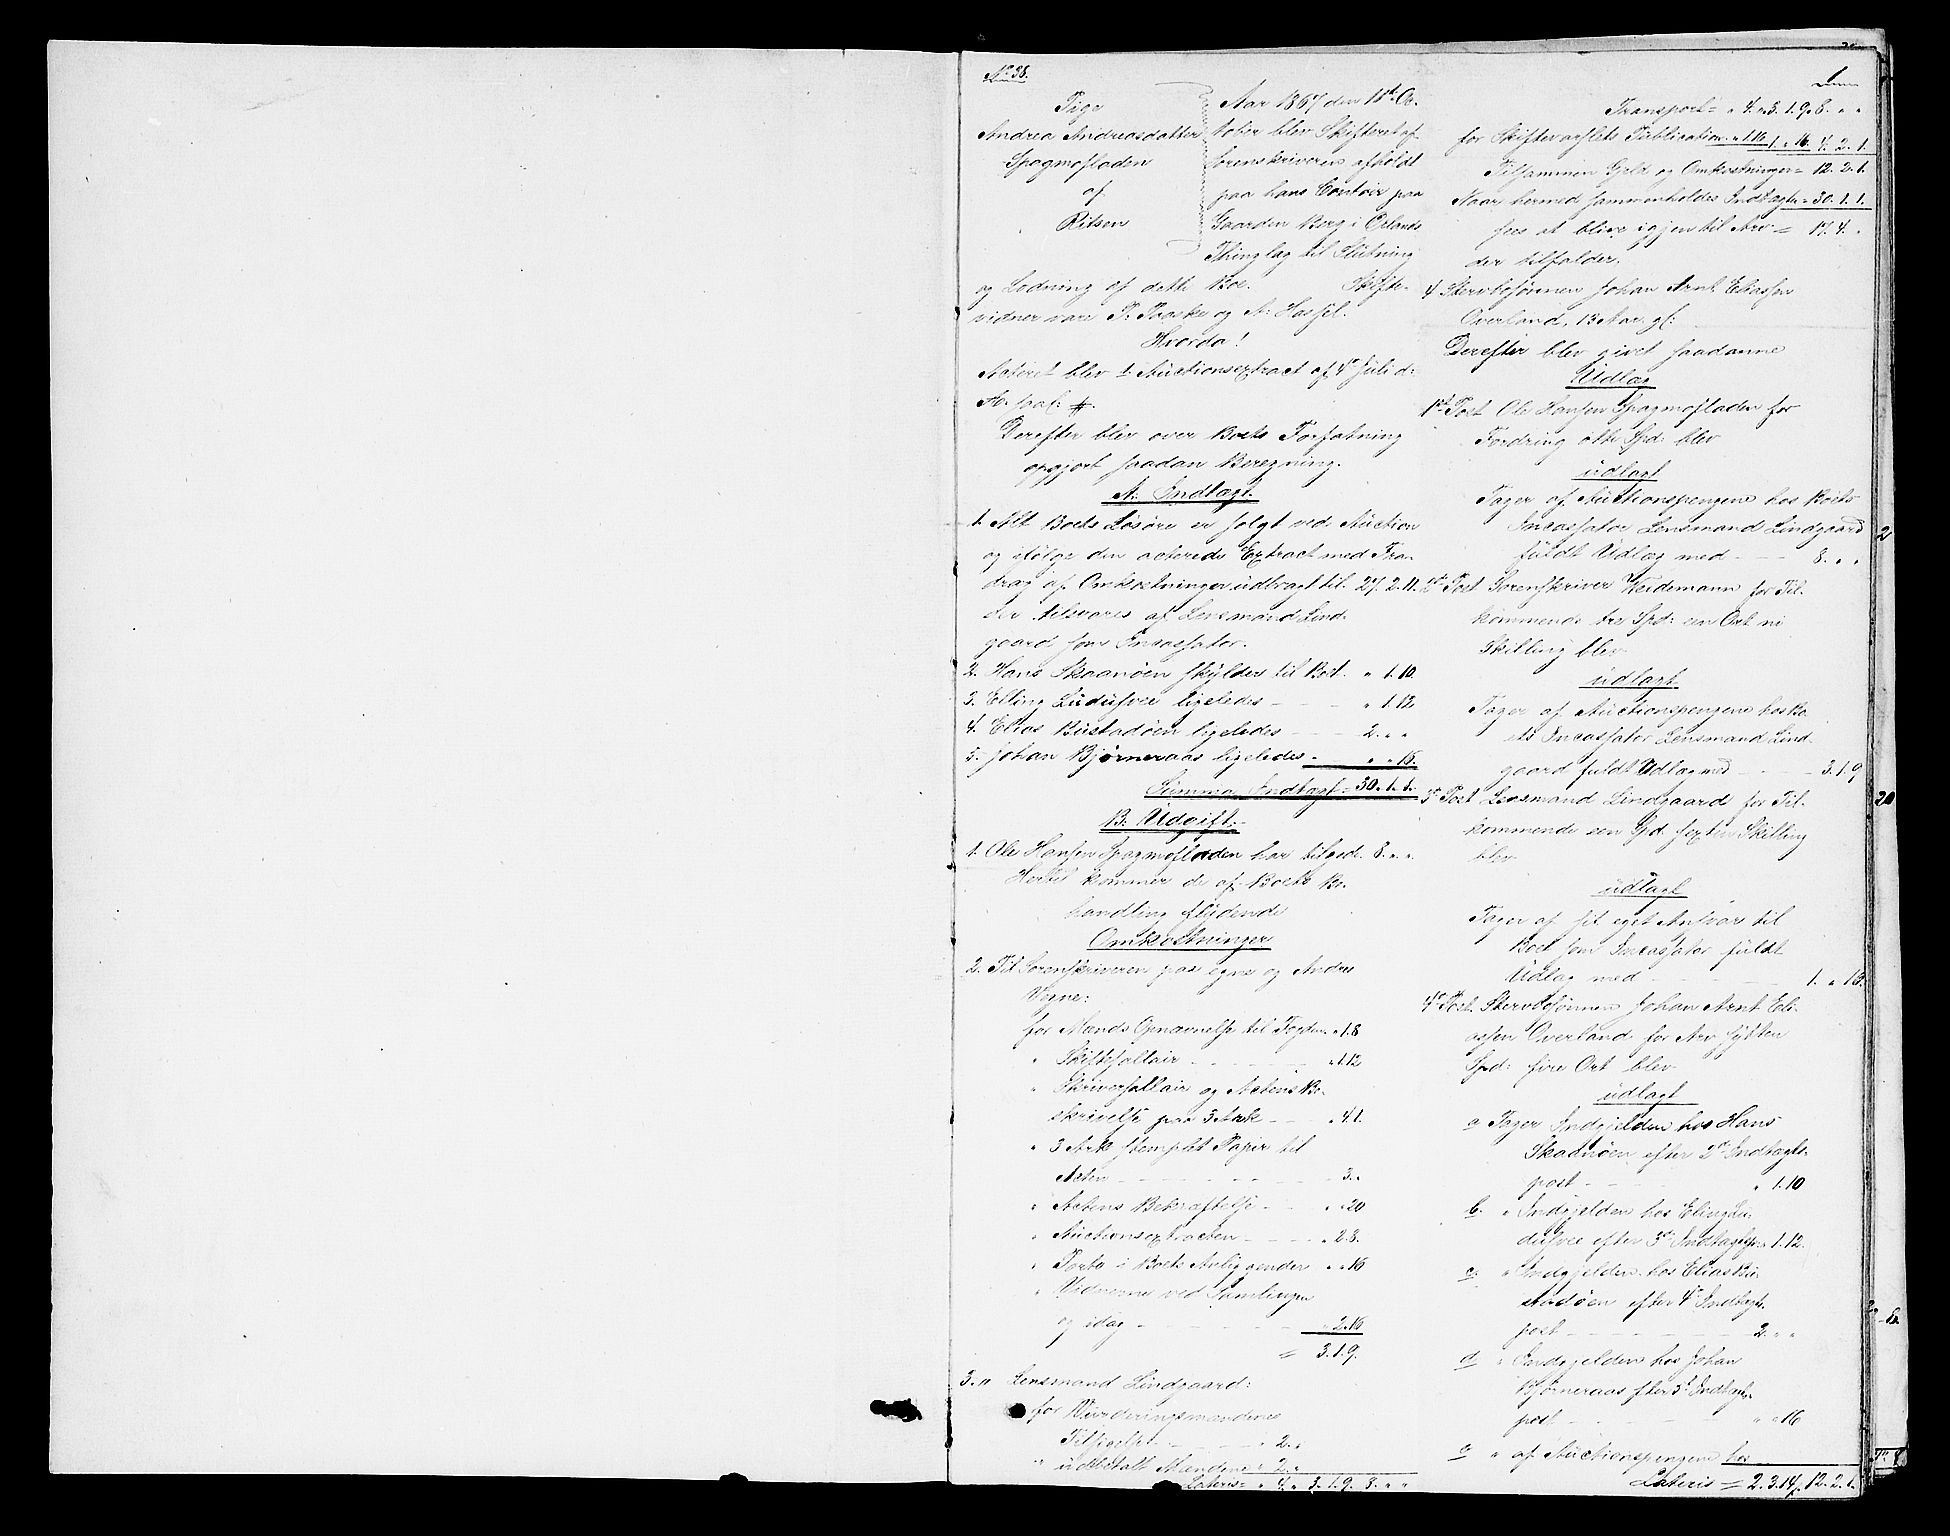 No 38.
Pige
Andrea Andreasdatter
Spagmofladen
af
Ritsen
Aar 1867 den 11te Oc-
tober blev Skifteret af
Sorenskriveren afholdt
paa hans Contoir paa
Gaarden Borg i Ørlands
Thinglag til Slutning
og Lodning af dette Boe. Skifte-
vidner vare P. Paaske og A. Hassel.
Hvorda!
Acteret blev 1 Auctionsextract af 4de Juli d:
A: saal: #.
Derefter blev over Boets Forfatning
opgjort saadan Beregning.
A. Indtægt.
1. Alt Boets Løsøre er solgt ved Auction
og ifølge den acterede Extract med Fra-
drag af Omkostninger udbragt til 27. 2. 11.
der tilsvares af Lensmand Lind-
gaard som Incassator.
2. Hans Skaanøen skylder til Boet. " 1. 10.
3. Elling Ludusvei ligeledes - - - " 1. 12.
4. Elias Bustadøen ligeledes - - - 2. " "
5. Johan Bjørneraas ligeledes - " " 16.
Summa Indtægt = 30. 1. 1.
B. Udgift.
1. Ole Hansen Spagmofladen har tilgode. 8. " ".
Hertil kommer de af Boets Be-
handling flydende
Omkostninger
2. Til Sorenskriveren paa egne og Andres
Vegne:
for Mænds Opnævnelse til Taxten " 1. 8
" Skiftesallair - - - " 1. 12
" Skriversallair og Actens Be-
skrivelse paa 3 Ark - - " 4. 1.
" 3 Ark stemplet Papir til
Acten - - - - - 3. "
" Actens Bekræftelse - - " " 20
" Auctionsextracten - - - " 2. 8.
" Porto i Boets Anliggender " " 16
" Vidnerne ved Samlingen
og idag - - - - - " 2. 16
= 3. 1. 9.
3. " Lensmand Lindgaard:
for Vurderingsmændenes
Tilsigelse - - - " 2. "
" udbetalt Mændene " 2. "
Lateris = " 4. " 3. 1. 9. 8. " "
1
Transport = " 4. " 3. 1. 9. 8. " "
for Skiftevarslets Publication " 1. 16. 1. " 16. 4. 2. 1.
Tilsammen Gjeld og Omkostninger = 12. 2. 1.
Naar hermed sammenholdes Indtægten = 30. 1. 1.
sees at blive igjen til Arv = 17. 4. "
der tilfalder.
4 Stervbosønnen Johan Arnt Eliassen
Overland, 13 Aar gl:
Derefter blev givet saadanne
Udlæg
1ste Post Ole Hansen Spagmofladen for
Fordring otte Spd: blev
udlagt
Tager af Auctionspengene hos Boets
Incassator Lensmand Lindgaard
fuldt Udlæg med - - - 8. " "
2den Post Sorenskriver Weidemann for Til-
kommende tre Spd: een Ort ni
Skilling blev
udlagt
Tager af Auctionspengene hos Bo-
ets Incassator Lensmand Lind-
gaard fuldt Udlæg med - - - 3. 1. 9
3de Post Lensmand Lindgaard for Til-
kommende een Spd sexten Skilling
blev
udlagt
Tager af sit eget Ansvar til
Boet som Incassator fuldt
Udlæg med - - - 1. " 16.
4de Post Stervbosønnen Johan Arnt Eli-
assen Overland for Arv sytten
Spd: fire Ort blev
udlagt
a Tager Indgjelden hos Hans
Skaanøen efter 2den Indtægts-
post - - - - " 1. 10
b. " Indgjelden hos Elling Lu-
dusvei efter 3de Indtægtsp. " 1. 12.
c. " Indgjelden hos Elias Bu-
stadøen efter 4de Indtægts-
post - - - - - 2. " "
d " Indgjelden hos Johan
Bjørneraas efter 5te Indtægts-
post - - - - " " 16
e " af Auctionspengene hos
Lateris = 2. 3. 14. 12. 2. 1.
2
20